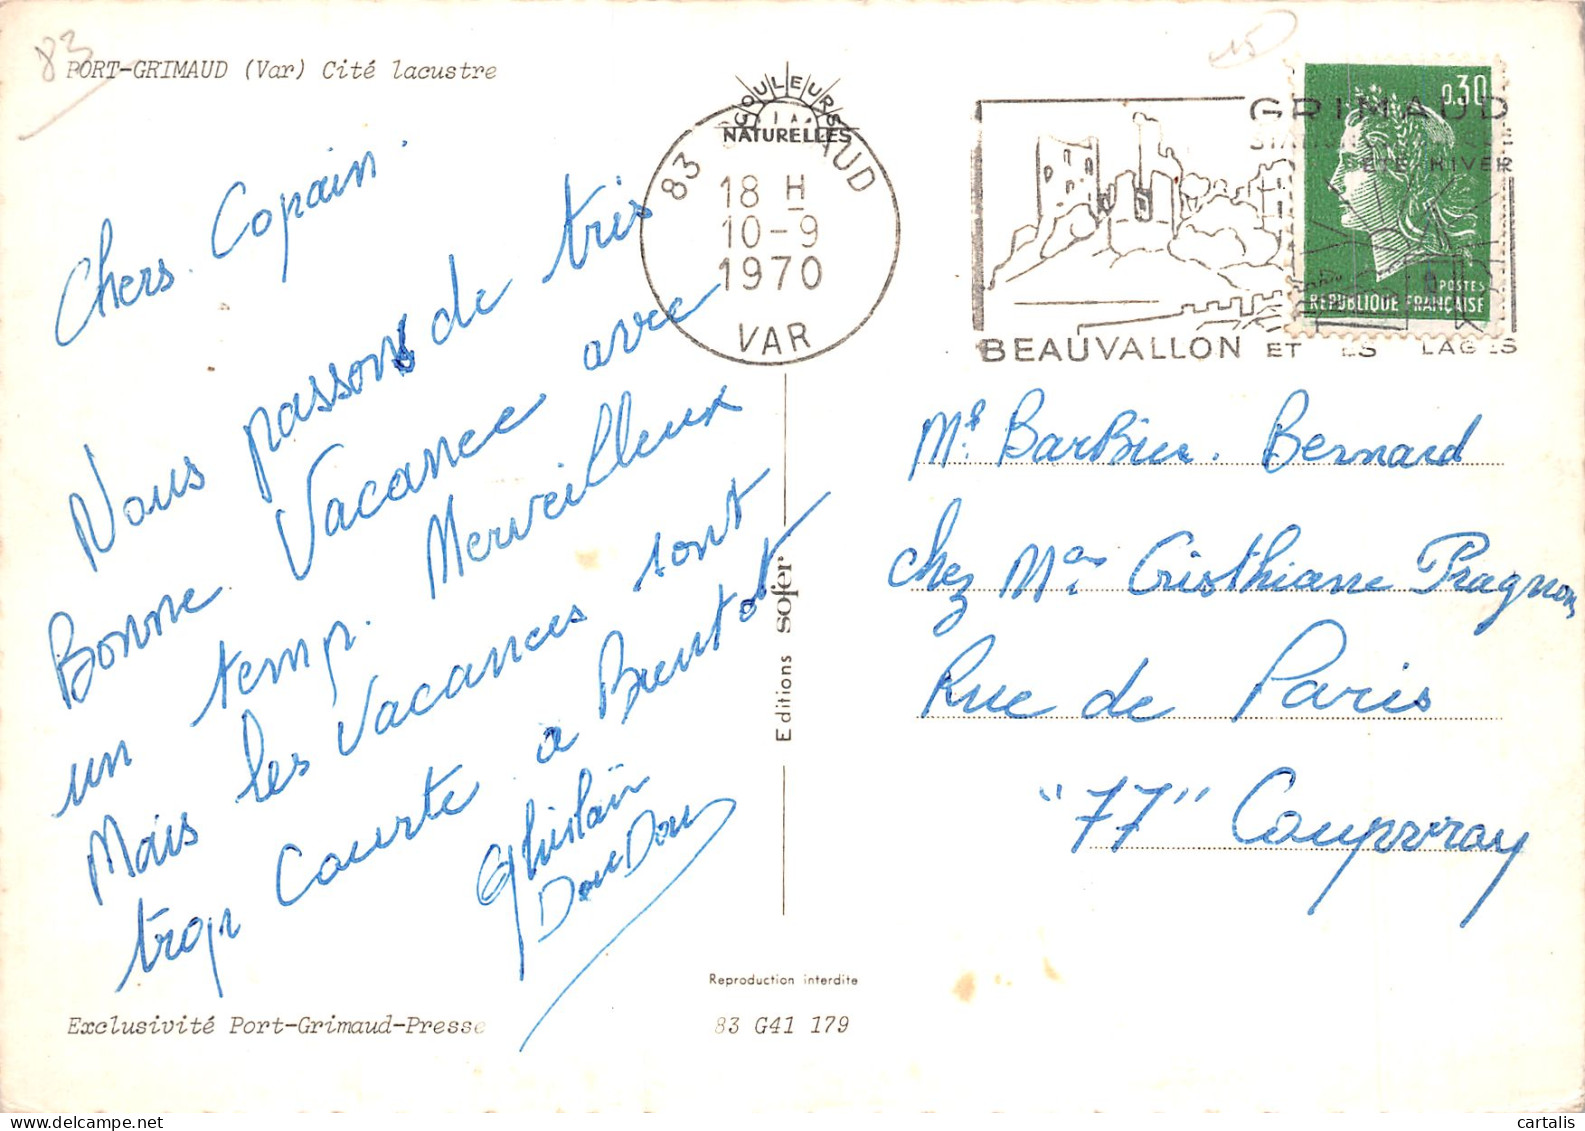 83
15
PORT-GRIMAUD (Var) Cité lacustre
COULEURS
NATURELLES
83 GRIMAUD
18 H
10-9
1970
VAR
GRIMAUD
ÉTÉ HIVER
BEAUVALLON ET LES PLAGES
0,30
POSTES
REPUBLIQUE FRANÇAISE
Chers Copain.
Nous passons de tris
Bonne Vacance avec
un temp. Merveilleux
Mais les Vacances sont
trop Courte a Bientot
Ghislain
DouDou
Mr. BarBier. Bernard
chez Mme Cristhiane Pragnon
Rue de Paris
"77" Coupvray
Editions sofer
Reproduction interdite
Exclusivité Port-Grimaud-Presse
83 G41 179
cartalis
delcampe.net